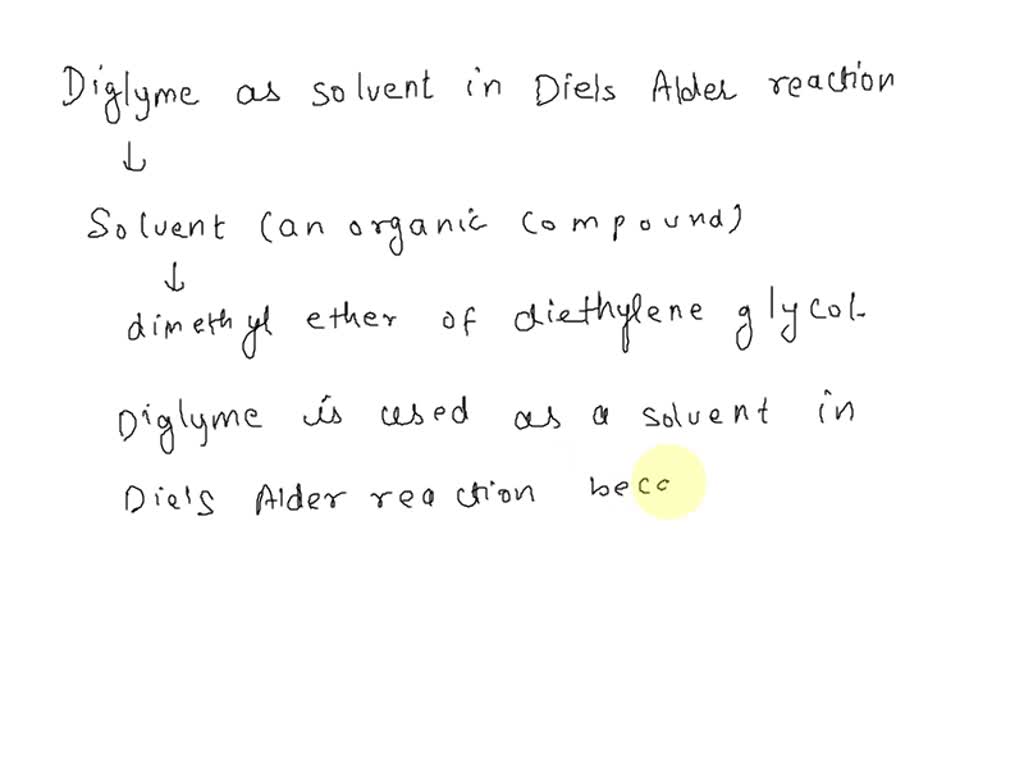 Diglyme as solvent in Diels Alder reaction
↓
Solvent (an organic compound)
↓
dimethyl ether of diethylene glycol.
Diglyme is used as a solvent in
Diels Alder reaction beca